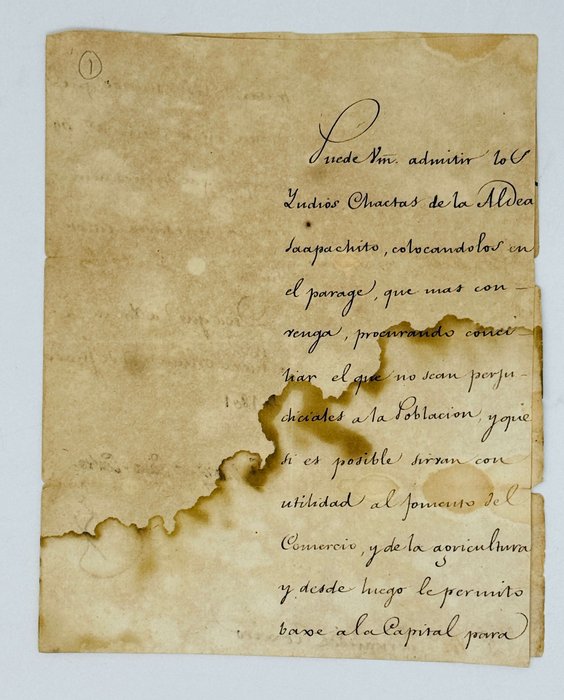 1
Puede Vm. admitir los
Yndios Chactas de la Aldea
saapachito, colocandolos en
el parage, que mas con-
venga, procurando conci-
liar el que no sean perju-
diciales a la Poblacion, y que
si es posible sirvan con
utilidad al fomento del
Comercio, y de la agricultura
y desde luego le permito
baxe a la Capital para